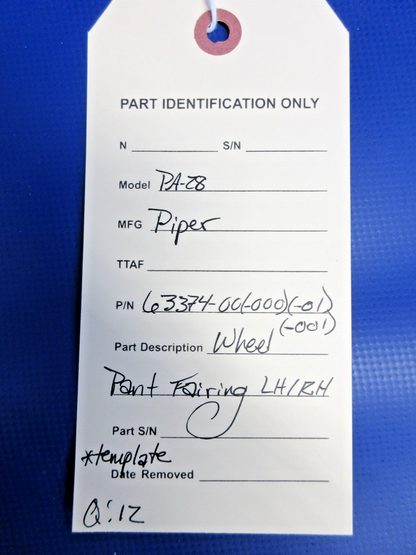 PART IDENTIFICATION ONLY
N S/N
Model PA-28
MFG Piper
TTAF
P/N 63374-00(-000)(-01)
(-001)
Part Description Wheel
Pant Fairing LH/RH
Part S/N
*template
Date Removed
Q:12